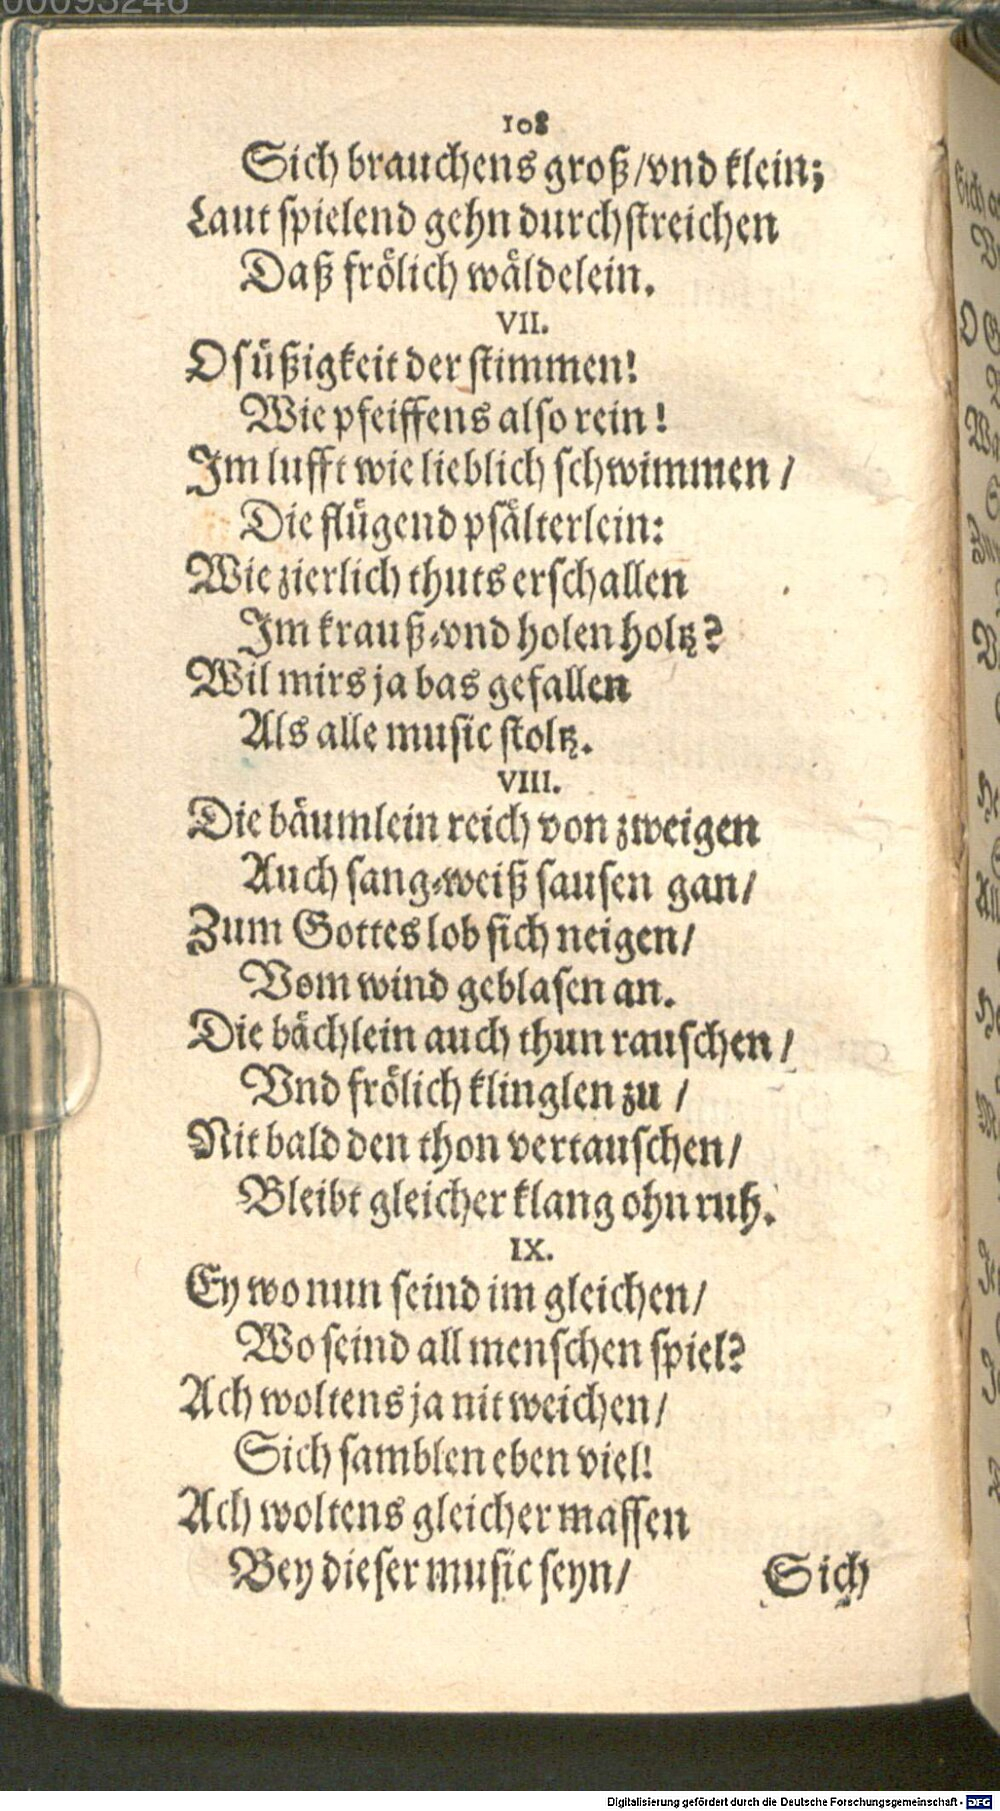 00093246
108
Sich brauchens groß/vnd klein;
Laut spielend gehn durchstreichen
Daß frölich wäldelein.
VII.
O süßigkeit der stimmen!
Wie pfeiffens also rein!
Im lufft wie lieblich schwimmen/
Die flügend psälterlein:
Wie zierlich thuts erschallen
Im krauß-vnd holen holtz?
Wil mirs ja bas gefallen
Als alle music stoltz.
VIII.
Die bäumlein reich von zweigen
Auch sang-weiß sausen gan/
Zum Gottes lob sich neigen/
Vom wind geblasen an.
Die bächlein auch thun rauschen/
Vnd frölich klinglen zu/
Nit bald den thon vertauschen/
Bleibt gleicher klang ohn ruh.
IX.
Ey wo nun seind im gleichen/
Wo seind all menschen spiel?
Ach woltens ja nit weichen/
Sich samblen eben viel!
Ach woltens gleicher massen
Bey dieser music seyn/
Sich
Digitalisierung gefördert durch die Deutsche Forschungsgemeinschaft - DFG